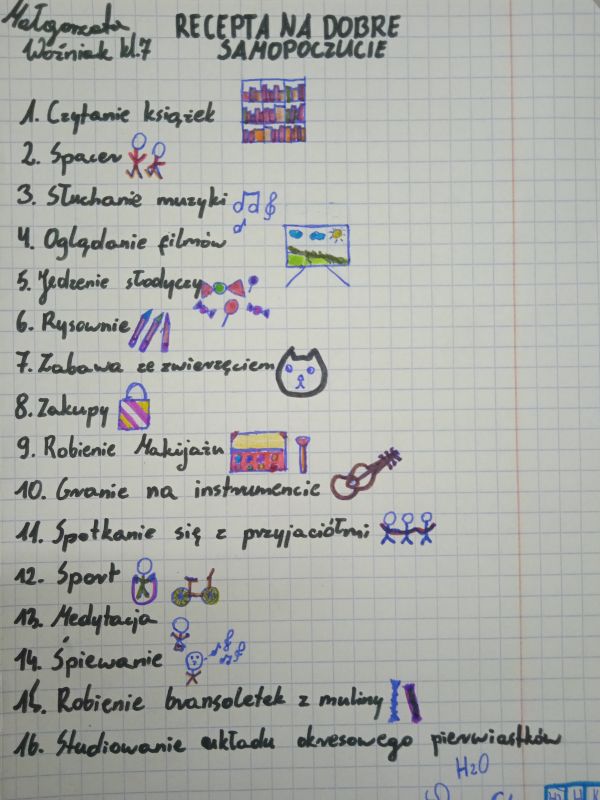 Małgorzata
Woźniak kl.7
RECEPTA NA DOBRE
SAMOPOCZUCIE
1. Czytanie książek
2. Spacer
3. Słuchanie muzyki
4. Oglądanie filmów
5. Jedzenie słodyczy
6. Rysownie
7. Zabawa ze zwierzęciem
8. Zakupy
9. Robienie Makijażu
10. Granie na instrumencie
11. Spotkanie się z przyjaciółmi
12. Sport
13. Medytacja
14. Śpiewanie
15. Robienie bransoletek z muliny
16. Studiowanie układu okresowego pierwiastków
H2O